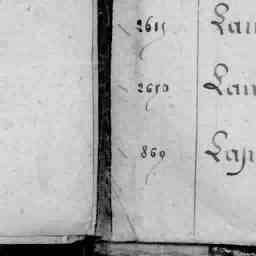 2615 Lau
2650 Lau
869 Lap